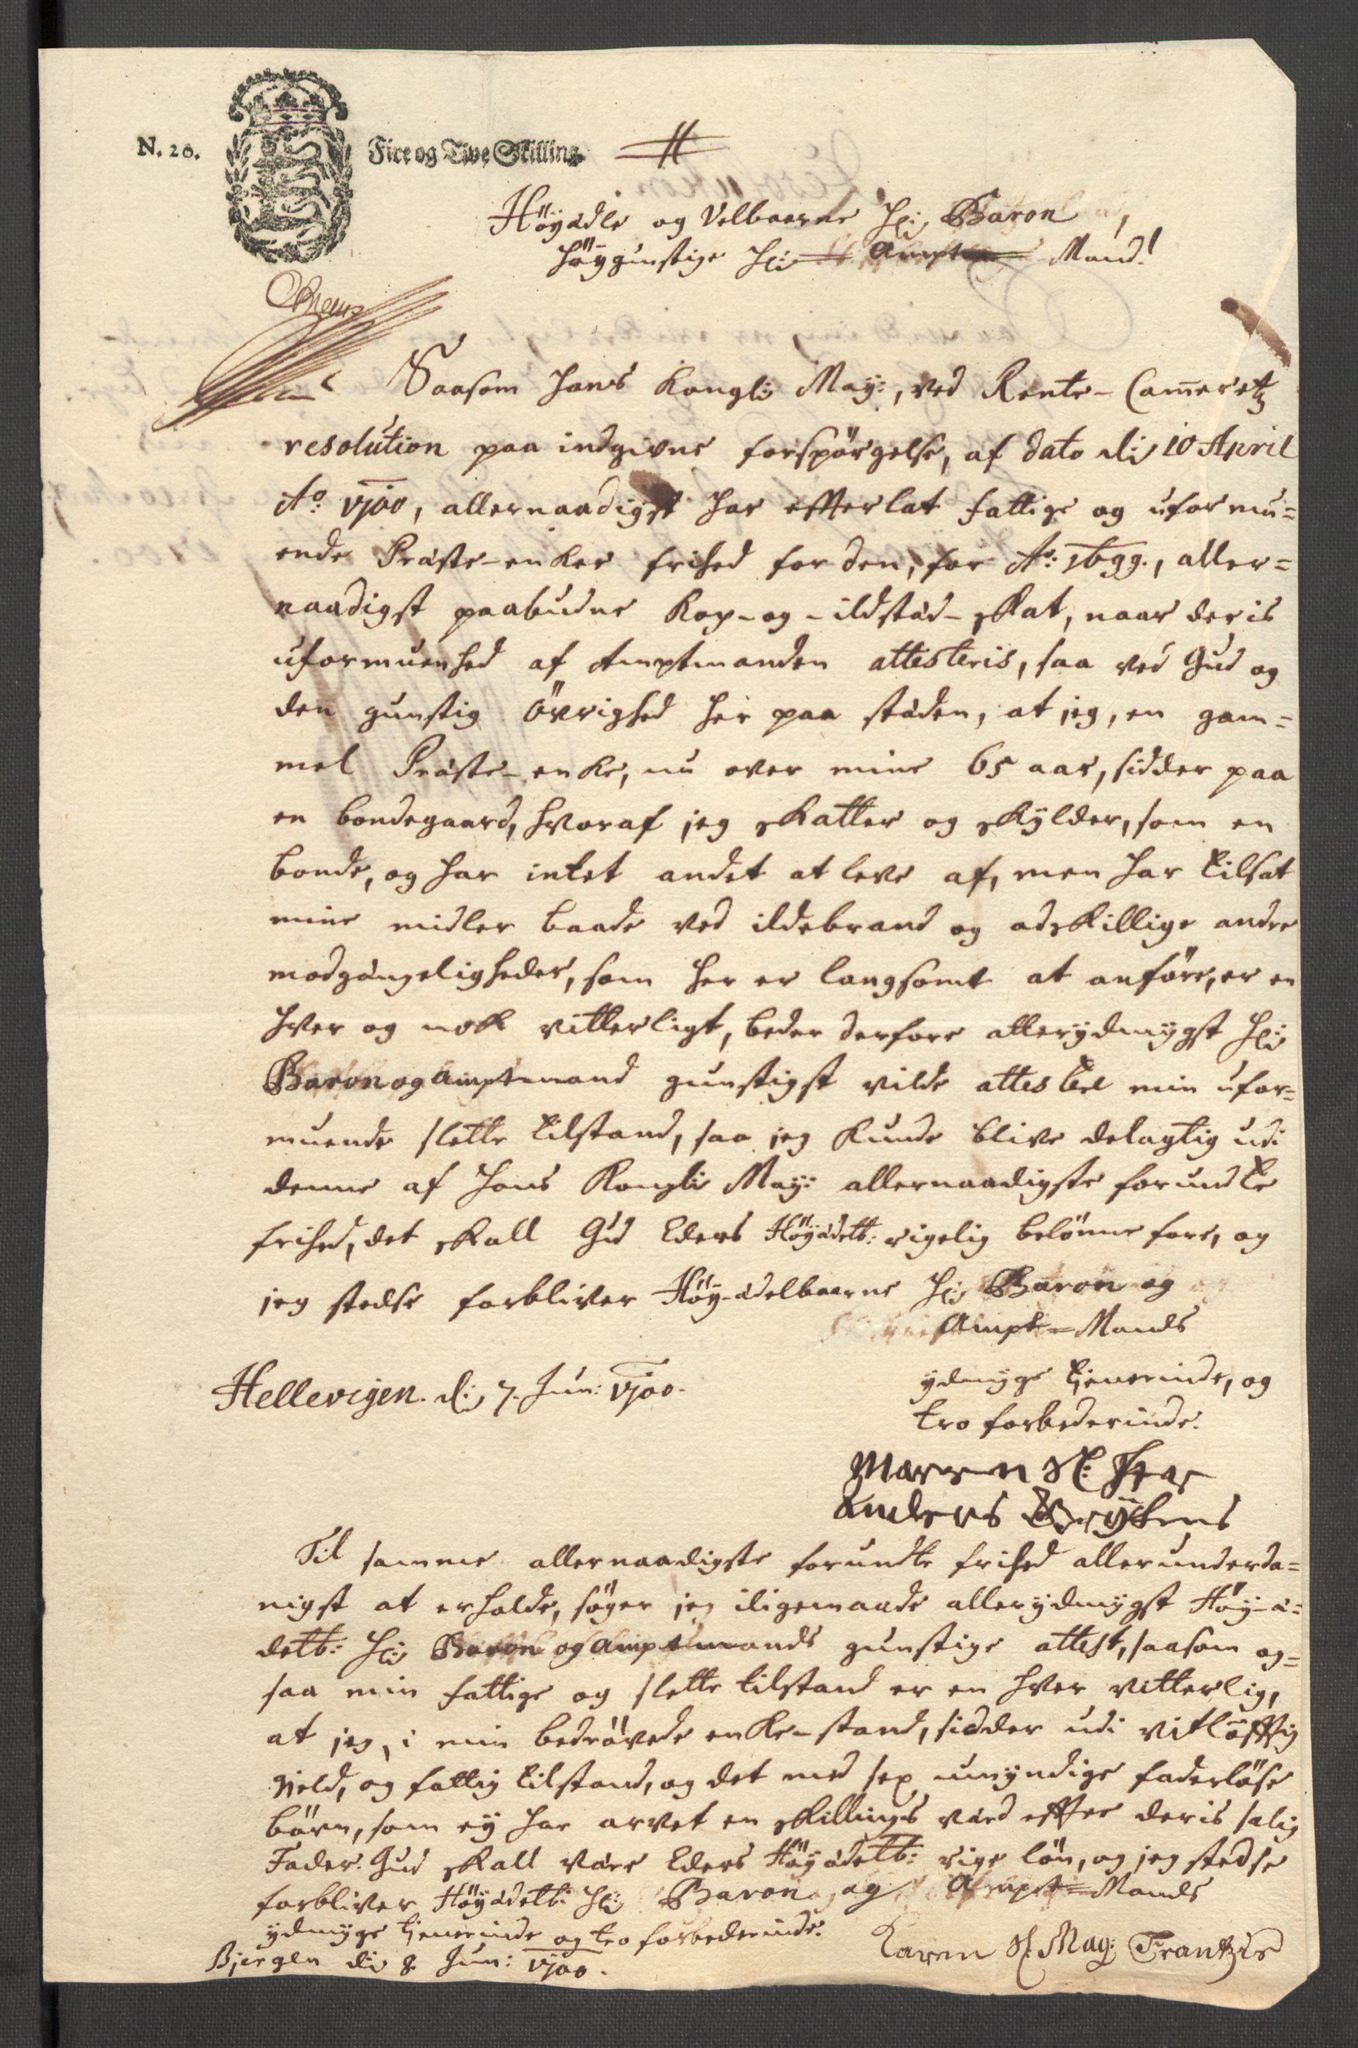 N. 20. Fire og Tive Skilling.
Höyädle og Velbaarne Hr. Baron,
höygunstige Hr. Ampt Mand!
Saasom Hans Kongl: May:, ved Rente-Cammeretz
resolution paa indgivne forspörgelse, af dato di 10 April
Ao: 1700, allernaadigst har effterlat fattige og uformu-
ende Präste-enker frihed for den, for Ao: 1699., aller-
naadigst paabudne Kop-og-ildstäd-skat, naar deris
uformuenhed af Amptmanden attesteris, saa ved Gud og
den gunstig Övrighed her paa städen, at jeg, en gam-
mel Präste-enke, nu over mine 65 aar, sidder paa
en bondegaard, hvoraf jeg skatter og skylder, som en
bonde, og har intet andet at leve af, men har tilsat
mine midler baade ved ildebrand og adskillige andre
modgängeligheder, som her er langsomt at anföre, er en
hver og nok vitterligt, beder derfore allerydmygst Hr.
Baron og Amptmand gunstigst vilde attestere min ufor-
muende slette tilstand, saa jeg kunde blive delagtig udi
denne af Hans Kongl: May: allernaadigste forundte
frihed, det skall Gud Eders Höyädelb: rigelig belönne fore, og
jeg stedse forbliver Höy-ädelbaarne Hr. Baron og
Ampt-Mands
ydmyge tjenerinde, og
tro forbederinde.
Hellevigen. di 7. Jun: 1700.
Maren Sl. Her
Anders
Til samme allernaadigste forundte frihed allerunderda-
nigst at erholde, söger jeg iligemaade allerydmygst Höy-ä-
delb: Hr. Baron og Amptmands gunstige attest, saasom og-
saa min fattige og slette tilstand er en hver vitterlig,
at jeg, i min bedrövede enke-stand, sidder udi vitlöfftig
gield, og fattig tilstand, og det med sex umyndige faderlöse
börn, som ey har arvet en skillings värd effter deris salig
Fader. Gud skall väre Eders Höyädelb: rige lön, og jeg stedse
forbliver Höyädelb: Hr. Baron og Ampt-Mands
ydmyge tjenerinde og tro forbederinde.
Bjergen di 8. Jun: 1700.
Karen Sl. Mag: Frantzis